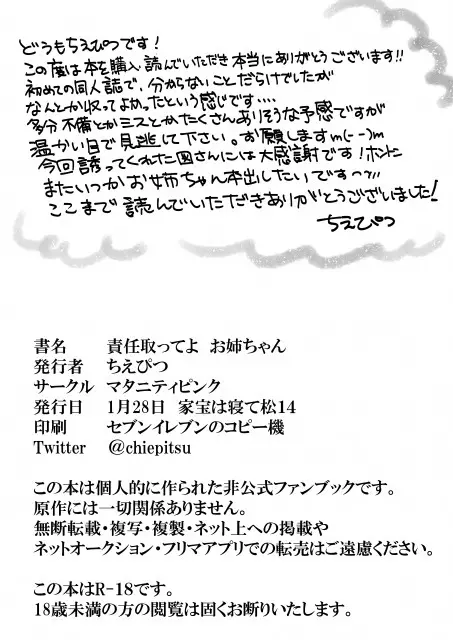 どうもちえぴつです!
この度は本を購入、読んでいただき本当にありがとうございます!!
初めての同人誌で、分からないことだらけでしたが
なんとか収ってよかったという感じです····
多分不備とかミスとかたくさんありそうな予感ですが
温かい目で見逃して下さい。お願しますm(--)m
今回誘ってくれた国さんには大感謝です!ホントに
またいつかお姉ちゃん本出したいですっ
ここまで読んでいただきありがとうございました!
ちえぴつ
書名 責任取ってよ お姉ちゃん
発行者 ちえぴつ
サークル マタニティピンク
発行日 1月28日 家宝は寝て松14
印刷 セブンイレブンのコピー機
Twitter @chiepitsu
この本は個人的に作られた非公式ファンブックです。
原作には一切関係ありません。
無断転載・複写・複製・ネット上への掲載や
ネットオークション・フリマアプリでの転売はご遠慮ください。
この本はR-18です。
18歳未満の方の閲覧は固くお断りいたします。